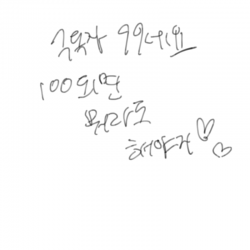 구독자 99네요
100되면
뭐라도
해야지♡♡